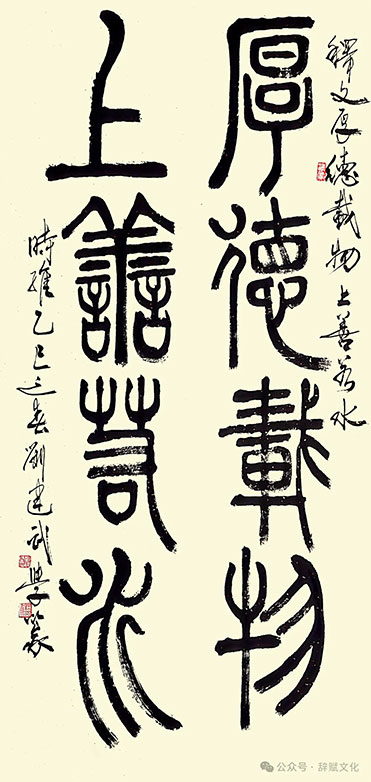 釋文厚德載物上善若水
厚德載物
上善若水
時維乙巳之春劉建武學篆
公众号·辞赋文化